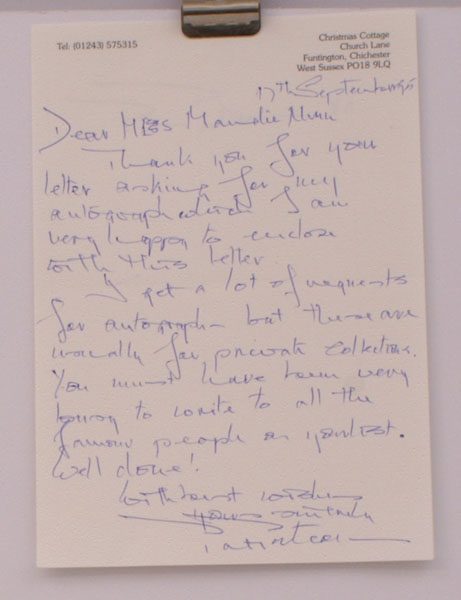 Tel: (01243) 575315
Christmas Cottage
Church Lane
Funtington, Chichester
West Sussex PO18 9LQ
17th September
Dear Miss
Thank you for your
letter asking for my
autograph which I am
very happy to enclose
with this letter
I get a lot of requests
for autographs but these are
usually for private collections.
You must have been very
busy to write to all the
famous people on your list.
Well done!
With best wishes
Yours sincerely